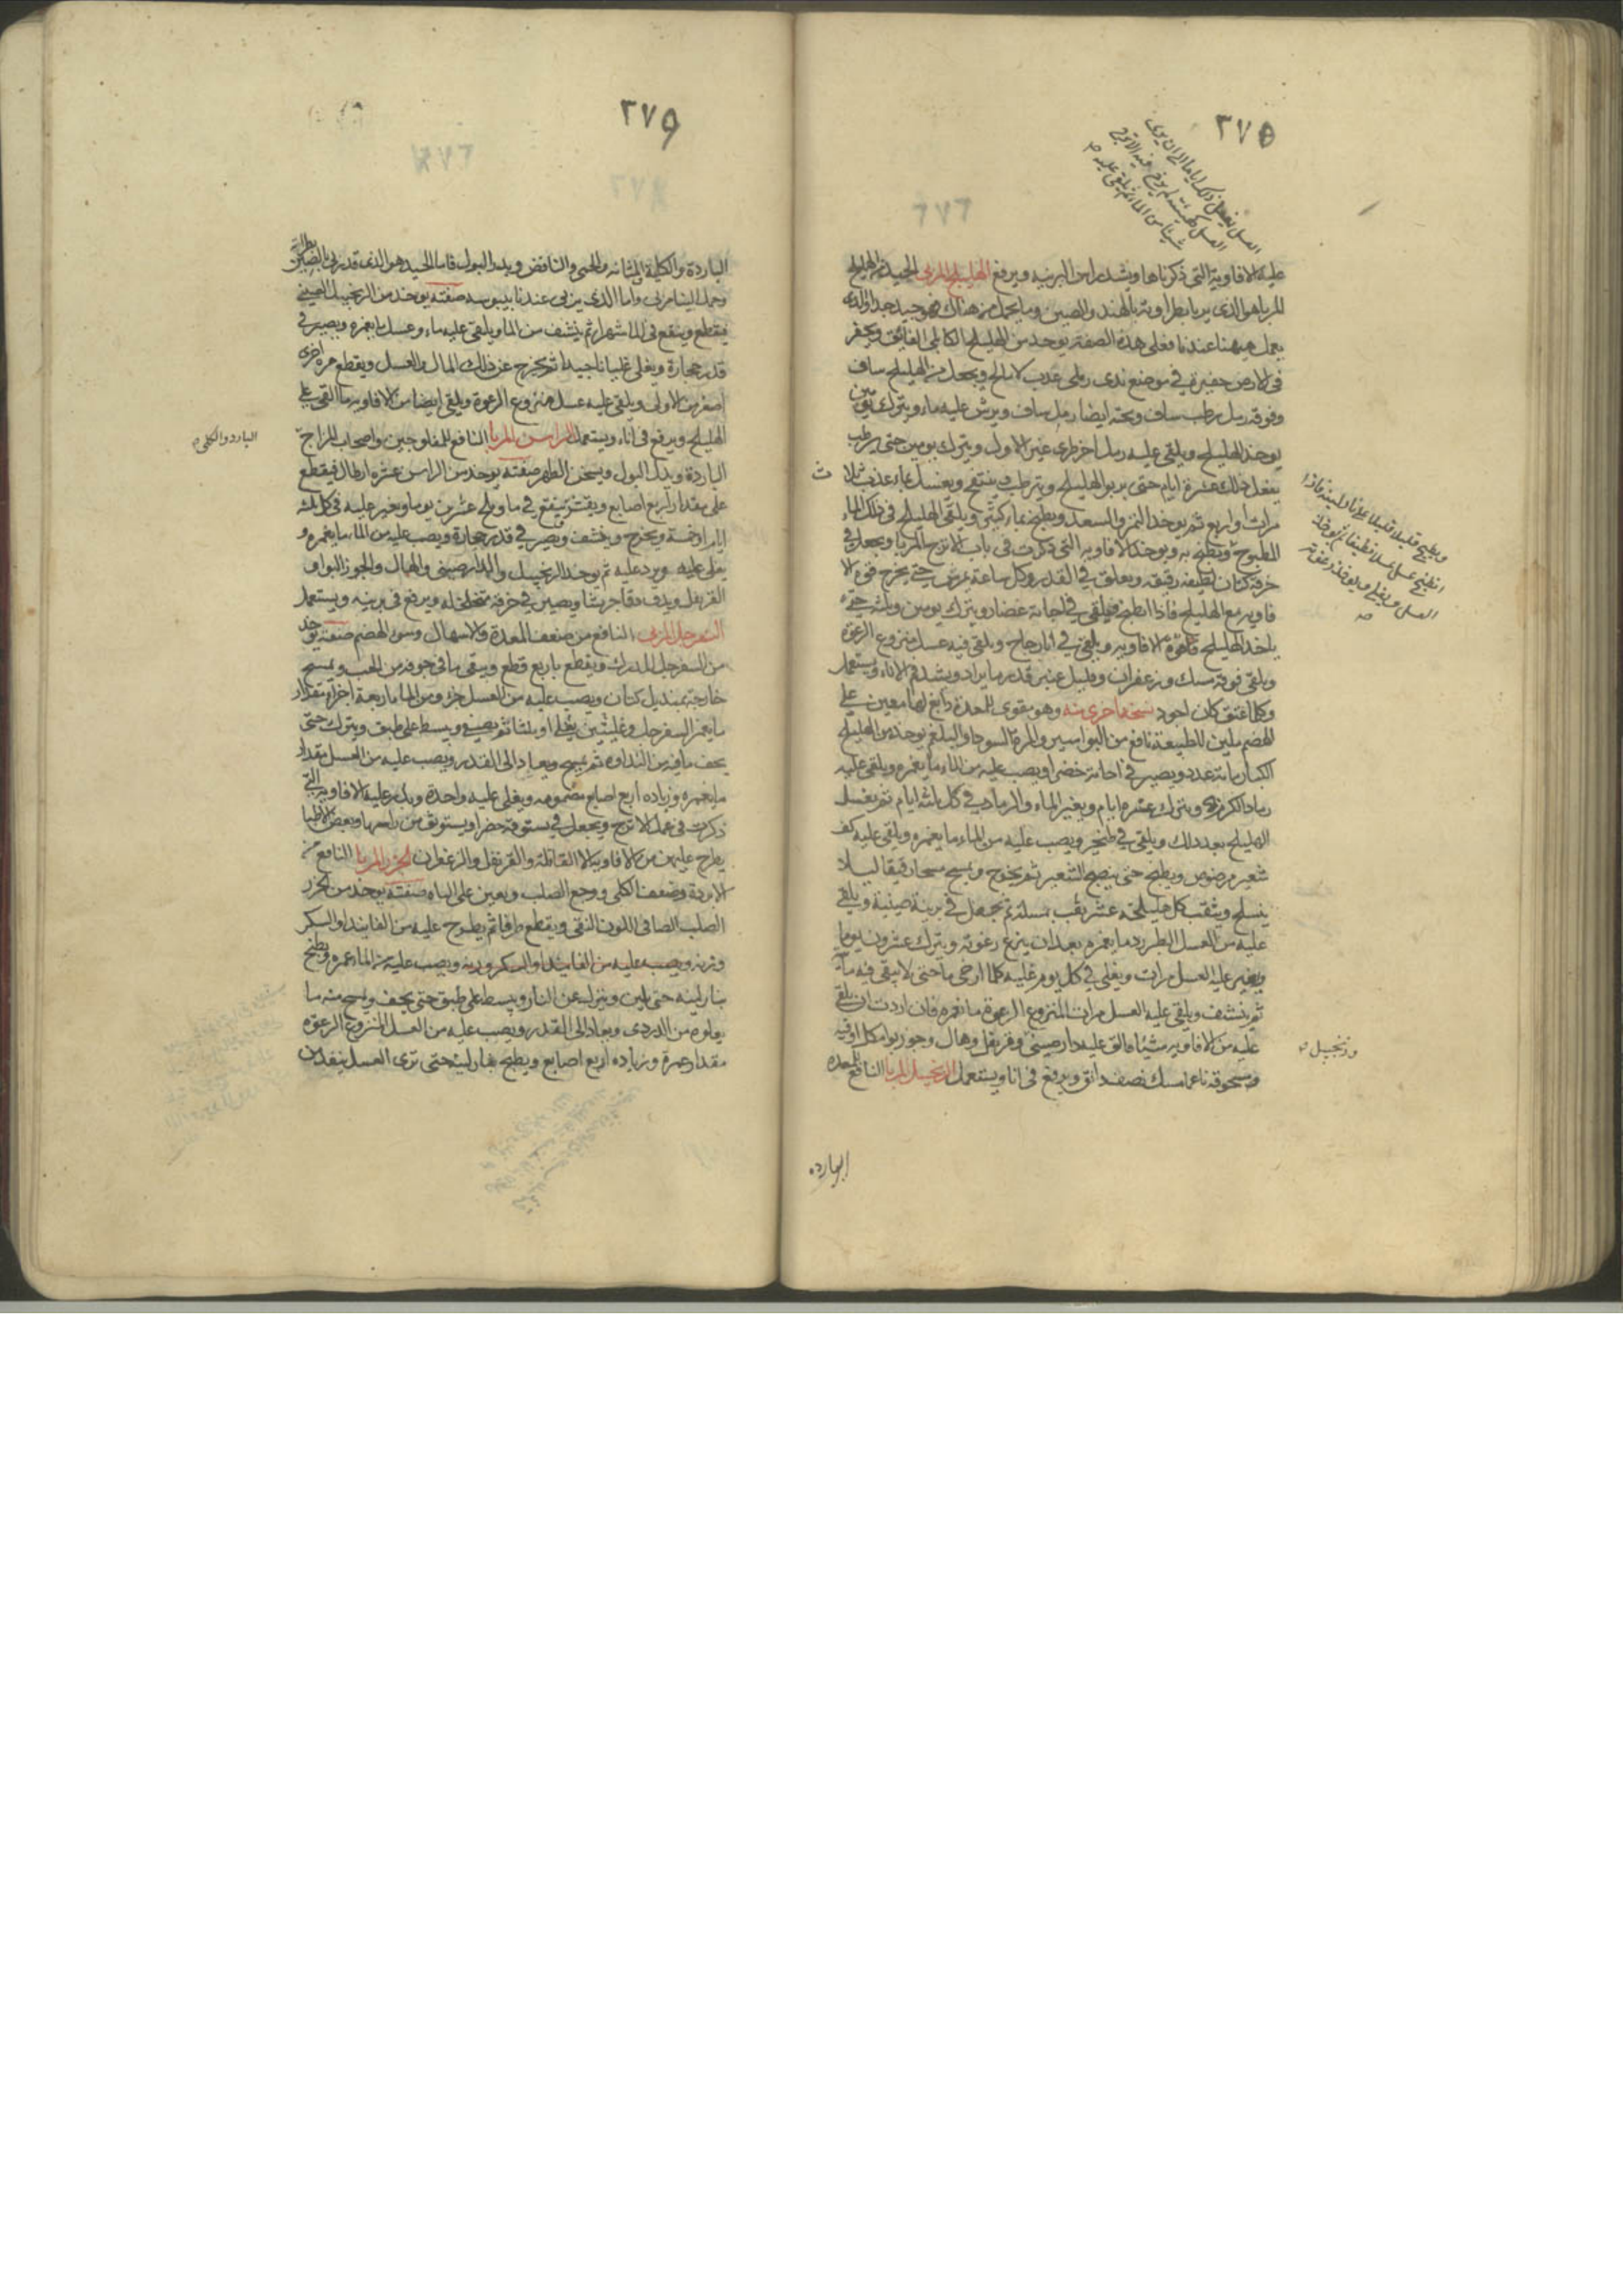 ٣٧٥
عليه الافاويه التى ذكرناها ويشد راس البرنيه ويرفع الهليلج المربى الجيد من الهليلج
المربا هو الذى يربا بطراوته بالهند والصين وما يحمل من هناك فهو جيد جدا والذى
يعمل ههنا عندنا فعلى هذه الصفة يوخذ من الهليلج الكابلى الفائق ويحفر
فى الارض حفيرة فى موضع ندى رملى عذب لا مالح ويجعل من الهليلج ساف
وفوقه رمل رطب ساف وتحته ايضا رمل ساف ويرش عليه ماء ويترك يومين
يوخذ الهليلج ويلقى عليه رمل اخر طرى غير الاول ويترك يومين حتى يرطب
يفعل ذلك عشرة ايام حتى يربو الهليلج ويترطب ينتفخ ويغسل بماء عذب ثلاث
مرات او اربع ثم يوخذ التمر والسعد ويطبخ بماء كثير ويلقى الهليلج فى ذلك الماء
المطبوخ ويطبخ به ويوخذ الافاويه التى ذكرت فى باب الاترج المربا ويجعل فى
خرقة كتان لطيفه رقيقه ويعلق فى القدر وكل ساعة يمرس حتى يخرج قوة الا
فاويه مع الهليلج فاذا انطبخ فيلقى فى اجانة غضار ويترك يومين وثلثه حتى
ياخذ الهليلج قوة الافاويه ويلقى فى انا زجاج ويلقى فيه عسل منزوع الرغوة
ويلقى فوقه مسك وزعفران وقليل عنبر قدر ما يراد ويشد فم الاناء ويستعمل
وكلما عتق كان اجود نسخه اخرى منه وهو مقوى للمعدة دابغ لها معين على
الهضم ملين للطبيعة نافع من البواسير والمرة السودا والبلغم يوخذ من الهليلج
الكبار مائة عدد ويصير فى اجانة خضرا ويصب عليه من الماء ما يغمره ويلقى عليه
رماد الكرم ويترك عشرة ايام ويغير الماء والرماد فى كل ثلثه ايام ثم يغسل
الهليلج بعد ذلك ويلقى فى طنجير ويصب عليه من الماء ما يغمره ويلقى عليه كف
شعير مرضوض ويطبخ حتى ينضج الشعير ثم يخرج ويمسح مسحا رقيقا ليلا
ينسلخ ويثقب كل هليلجة عشر ثقب بمسلة ثم يجعل فى برنية صينية ويلقى
عليه من العسل الطبرزد ما يغمره بعد ان ينزع رغوته ويترك عشرون يوما
ويغير عليه العسل مرات ويغلى فى كل يوم غليه كلما ارخى ما حتى لا يبقى فيه ماء
ثم ينشف ويلقى عليه العسل مرات المنزوع الرغوة ما يغمره فان اردت ان يلقى
عليه من الافاويه شيئا فالق عليه دارصينى وقرنفل وهال وجوزبوا مكل اوقيه
مسحوقه ناعما مسك نصف دانق ويرفع فى انا ويستعمل الزنجبيل المربا النافع للمعده
وزنجبيل
البارده
٣٧٦
الباردة والكلية والمثانه والحمى والنافض ويدر البول فاما الجيد هو الذى قد ربى بالصين بطراته
وحمل الينا مربى واما الذى يربى عندنا بيبوسه صفته يوخذ من الزنجبيل الصينى
فيقطع وينقع فى الما شهرا ثم ينشف من الما ويلقى عليه ماء وعسل ما يغمره ويصير فى
قدر حجارة ويغلى غليانا جيدا ثم يخرج عن ذلك الما والعسل ويقطع مرة اخرى
اصغر من الاولى ويلقى عليه عسل منزوع الرغوة ويلقى ايضا من الافاويه ما القى على
الهليلج ويرفع فى اناء ويستعمل الراسن المربا النافع للمفلوجين واصحاب المزاج
الباردة ويدر البول ويسخن الظهر صفته يوخذ من الراسن عشرة ارطال فيقطع
على مقدار اربع اصابع ويقشر ينقع فى ما وملح عشرين يوما ويغير عليه فى كل ثلثه
ايام او خمسة ويخرج وينشف ويصير فى قدر حجارة ويصب عليه من الماء ما يغمره و
يغلى عليه ويرد عليه ثم يوخذ الزنجبيل والدارصينى والهال والجوزبوا و
القرنفل ويدق دقا جريشا ويصير فى خرقة متخلخله ويرفع فى برنيه ويستعمل
السفرجل المربى النافع من ضعف المعدة والاسهال وسوء الهضم صفته يوخذ
من السفرجل المدرك ويقطع باربع قطع وينقى ما فى جوفه من الحب ويمسح
خارجه بمنديل كتان ويصب عليه من العسل جزء ومن الما اربعة اجزاء مقدار
ما يغمر السفرجل وغليتين يغلى او ثلثا ثم يصفى ويبسط على طبق ويترك حتى
يجف ما فيه من النداوه ثم يمسح ويعاد الى القدر ويصب عليه من العسل مقدار
ما يغمره وزياده اربع اصابع مضمومه ويغلى عليه واحدة ويذر عليه الافاويه التى
ذكرت فى عمل الاترج ويجعل فى بستوقة خضرا ويستوثق من راسها وبعض الاطبا
يطرح عليه من الافاويه الا القاقلة والقرنفل والزعفران الجزر المربا النافع من
الابردة وضعف الكلى ووجع الصلب ويعين على الباه صفته يوخذ من الجزر
الصلب الصافى اللون النقى ويقطع طرفا ثم يطرح عليه من الفانيد او السكر
وزنه ويصب عليه من الفانيد او السكر وزنه ويصب عليه من الماء غمره ويطبخ
بنار لينه حتى يلين وينزل عن النار ويبسط على طبق حتى يجف ويمسح منه ما
يعلوه من الدردى ويعاد الى القدر ويصب عليه من العسل المنزوع الرغوه
مقدار غمرة وزياده اربع اصابع ويطبخ بنار لينه حتى ترى العسل ينعقد
البارد والكلى